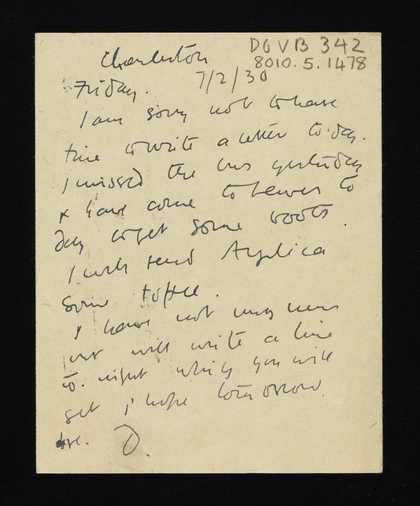 Charleston
DGVB 342
8010.5.1478
7/2/30
Friday.
I am sorry not to have
time to write a letter to-day.
I missed the bus yesterday
& have come to Lewes to
day to get some boots.
I will send Angelica
some toffee.
I have not any news
but will write a line
to-night which you will
get I hope tomorrow.
love. D.